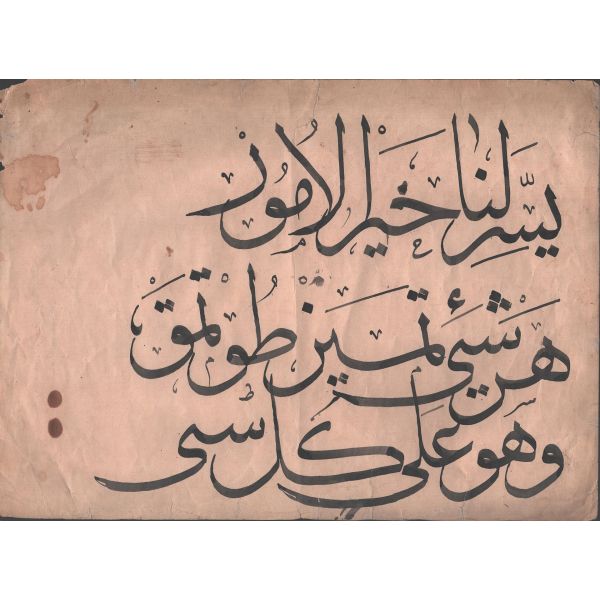 يسّر لنا خير الامور
هر شيئ تميز طوتمق
وهو على كل شى